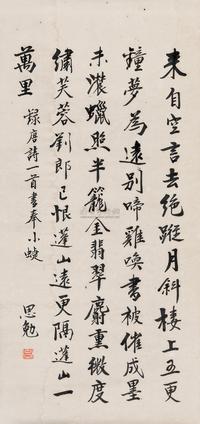 来自空言去絶蹤月斜樓上五更
鐘夢為遠別啼難喚書被催成墨
未濃蠟照半籠金翡翠麝熏微度
繡芙蓉劉郎已恨蓬山遠更隔蓬山一
萬里
錄唐詩一首書奉小蝶
思勉